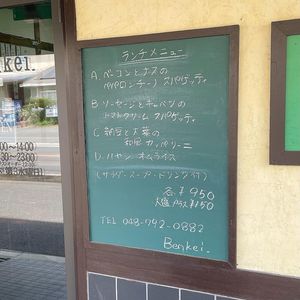 ランチメニュー
A. ベーコンとナスの
ペペロンチーノ スパゲッティ
B. ソーセージとキャベツの
トマトクリーム スパゲッティ
C. 納豆と大葉の
和風 カッペリーニ
D. ハヤシ オムライス
(サラダ・スープ・ドリンク付)
各¥950
大盛 プラス ¥150
TEL 048-792-0882
Benkei.
nkei.
~14:00
~23:00